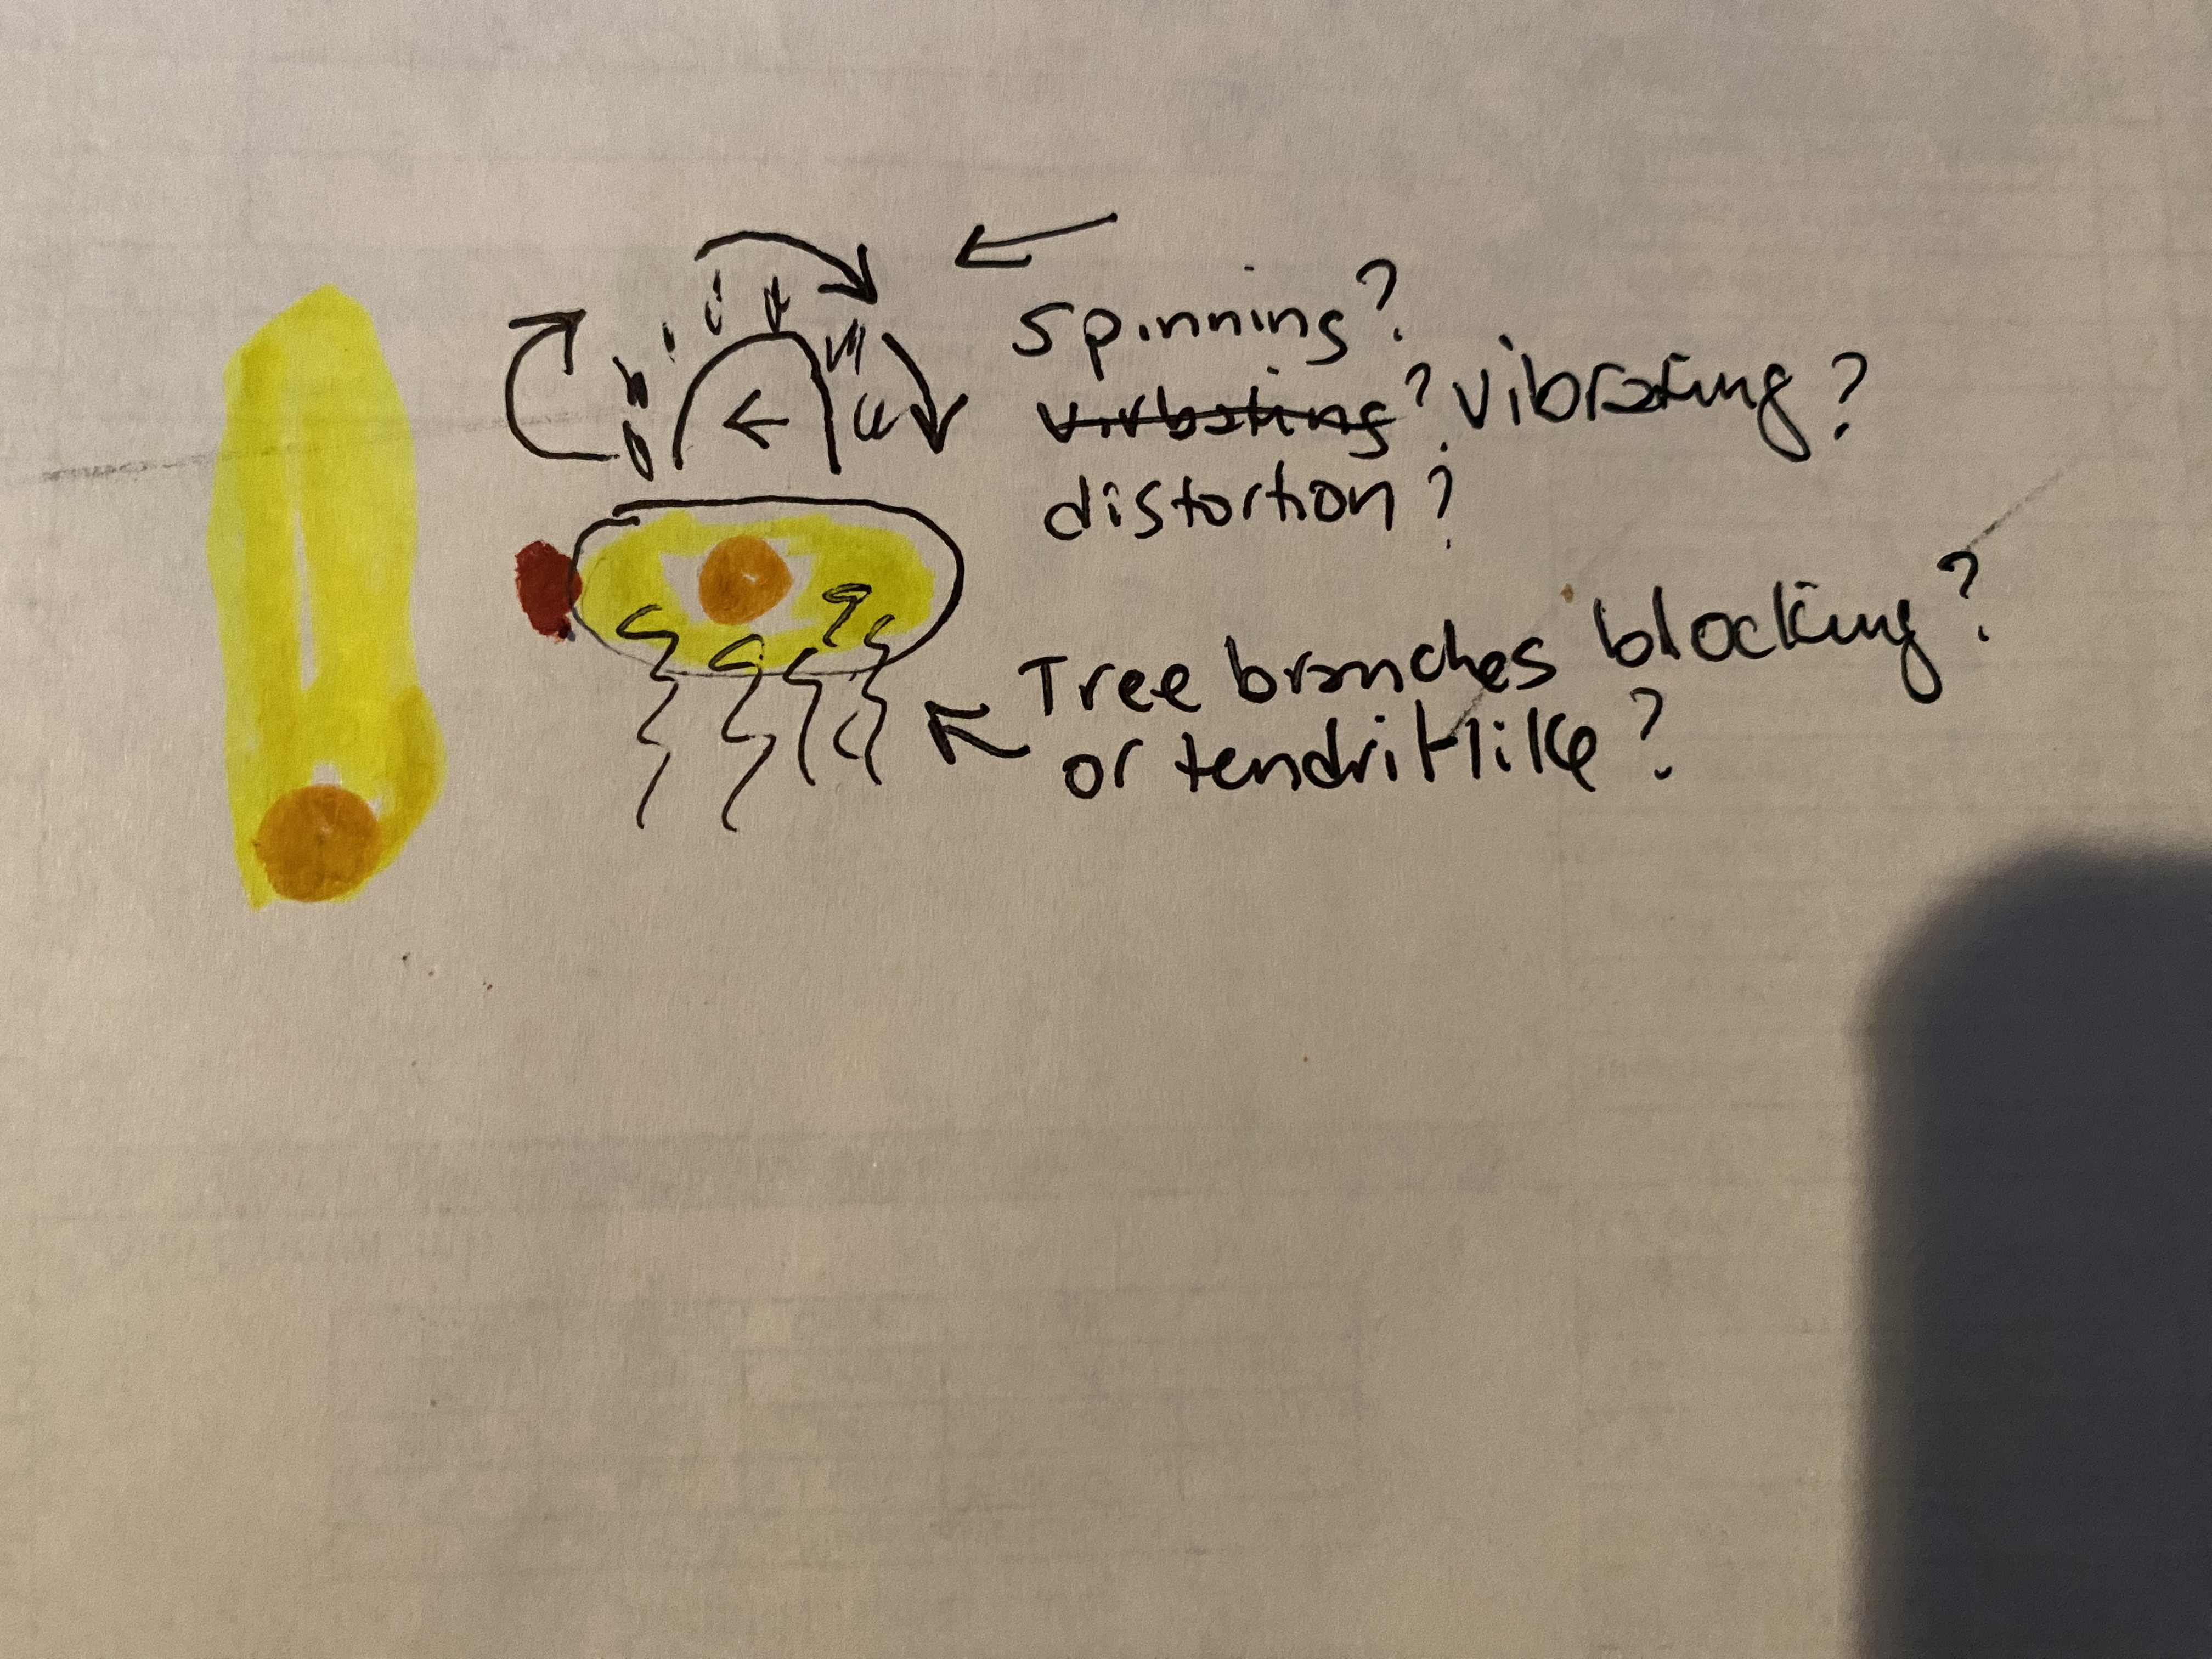 Spinning?
vibrating? vibrating?
distortion?
Tree branches blocking?
or tendril like?